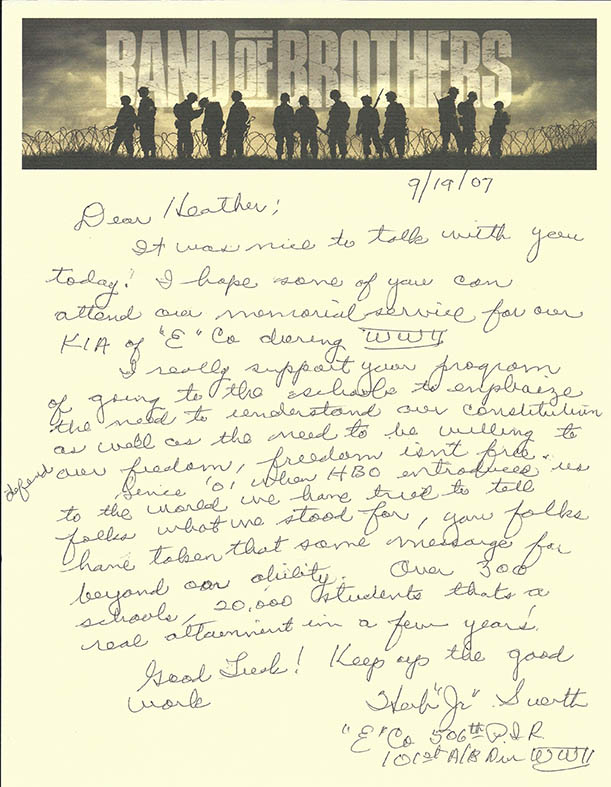 BAND OF BROTHERS
9/19/07
Dear Heather;
It was nice to talk with you
today! I hope some of you can
attend our memorial service for our
KIA of "E" Co during WWII
I really support your program
of going to the schools to emphaize
the need to understand our constitution
as well as the need to be willing to
defend our fredom, freedom isn't free.
Since '01 when HBO entroduced us
to the world we have tried to tell
folks what we stood for, you folks
have taken that same message far
beyond our ability. Over 300
schools, 20,000 students thats a
real attainment in a few years!
Good Luck! Keep up the good
work
Herb "Jr" Suerth
"E" Co 506th P.I.R
101st A/B Div WWII